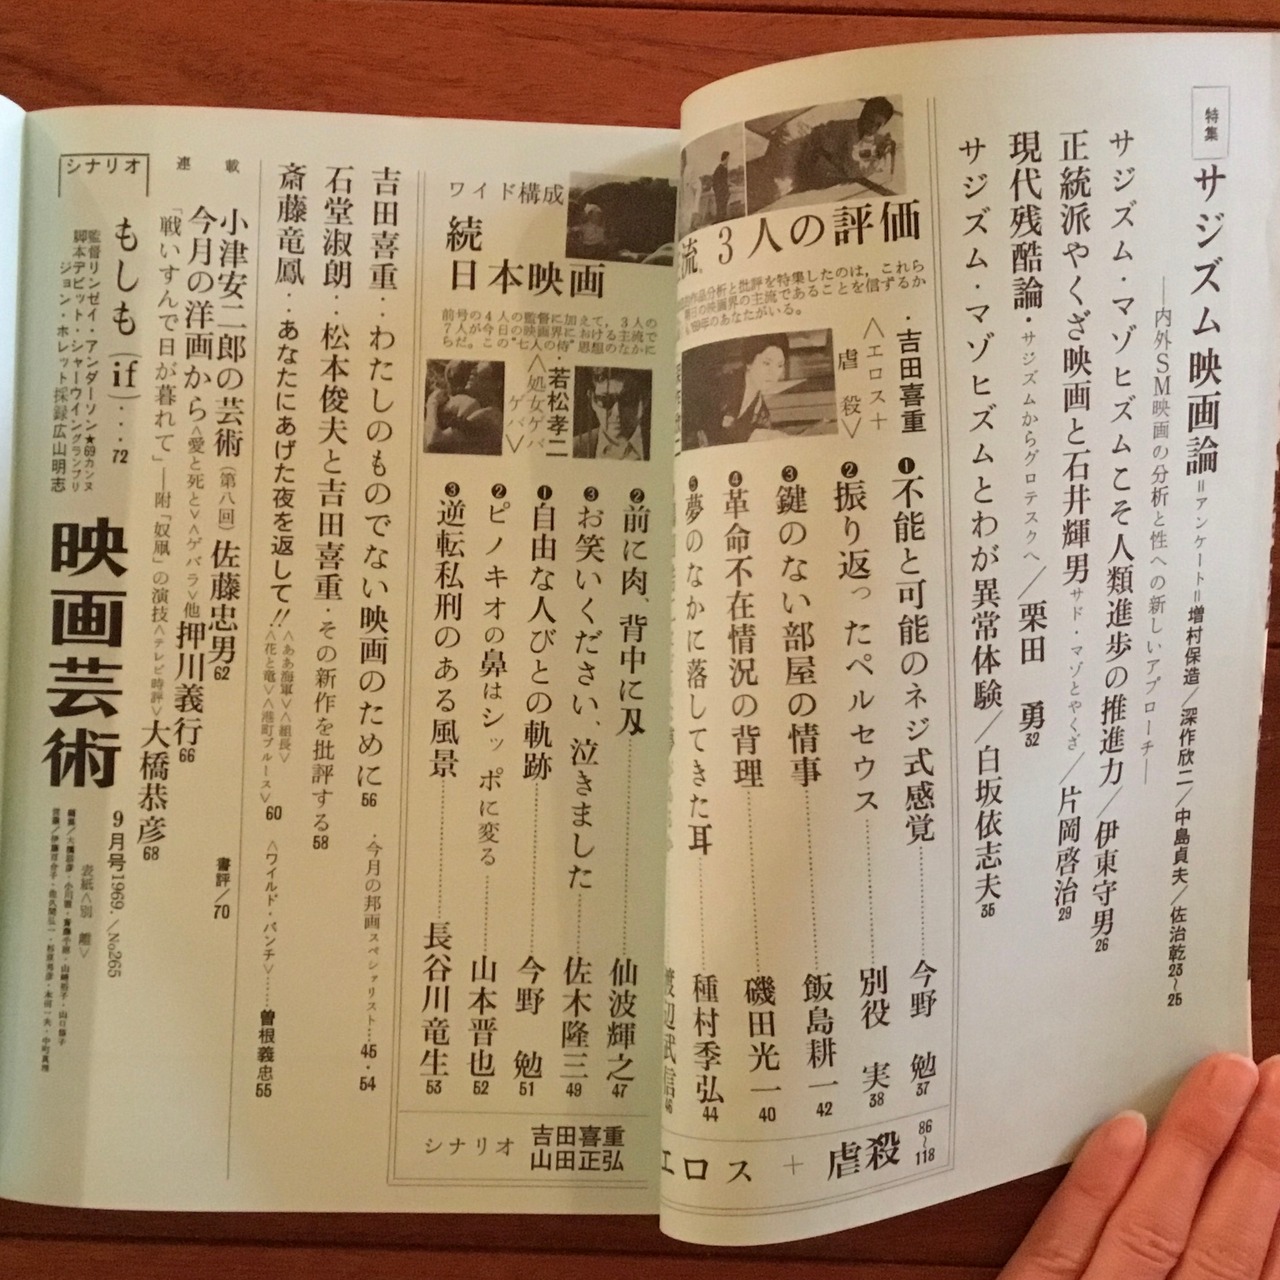 特集
サジズム映画論=アンケート=増村保造/深作欣二/中島貞夫/佐治乾23〜25
―内外SM映画の分析と性への新しいアプローチ―
サジズム・マゾヒズムこそ人類進歩の推進力/伊東守男26
正統派やくざ映画と石井輝男サド・マゾとやくざ/片岡啓治29
現代残酷論・サジズムからグロテスクへ/栗田 勇32
サジズム・マゾヒズムとわが異常体験/白坂依志夫35
流、3人の評価
作品分析と批評を特集したのは、これら
日の映画界の主流であることを信ずるか
年のあなたがいる。
・吉田喜重
<エロス+
虐殺>
❶不能と可能のネジ式感覚 今野 勉37
❷振り返ったペルセウス 別役 実38
❸鍵のない部屋の情事 飯島耕一42
❹革命不在情況の背理 磯田光一40
❺夢のなかに落してきた耳 種村季弘44
渡辺武信46
エロス + 虐殺 86〜118
ワイド構成
続
日本映画
前号の4人の監督に加えて、3人の
7人が今日の映画界における主流で
らだ。この“七人の侍”思想のなかに
・若松孝二
<処女ゲバ
ゲバ>
❷前に肉、背中に刃 仙波輝之47
❸お笑いください、泣きました 佐木隆三49
❶自由な人びとの軌跡 今野 勉51
❷ピノキオの鼻はシッポに変る 山本晋也52
❸逆転私刑のある風景 長谷川竜生53
シナリオ 吉田喜重
山田正弘
吉田喜重・・わたしのものでない映画のために56
・今月の邦画スペシャリスト…45・54
石堂淑朗・・松本俊夫と吉田喜重・その新作を批評する58
斎藤竜鳳・・あなたにあげた夜を返して!!<ああ海軍><組長><花と竜><港町ブルース>60
<ワイルド・バンチ>……曽根義忠55
連載
小津安二郎の芸術(第八回)佐藤忠男62
書評/70
今月の洋画から<愛と死と><ゲバラ>他 押川義行66
「戦いすんで日が暮れて」―附「奴凧」の演技<テレビ時評>大橋恭彦68
シナリオ
もしも(if)・・・72
監督リンゼイ・アンダーソン★69カンヌグランプリ
脚本デビット・シャーウイン
ジョン・ホレット 採録広山明志
映画芸術
9月号1969./No265